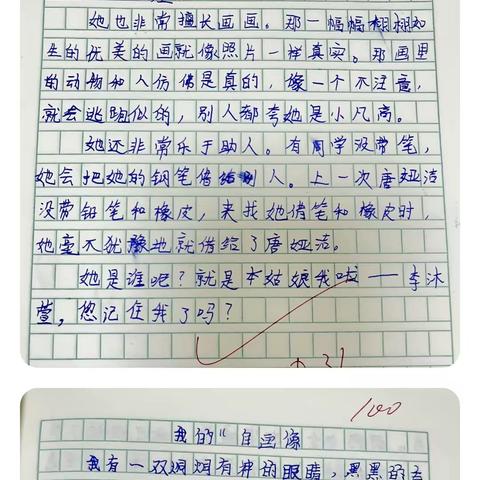 她也非常擅长画画。那一幅幅栩栩如
生的优美的画就像照片一样真实。那画里
的动物和人仿佛是真的，像一个不注意，
就会逃跑似的，别人都夸她是小凡高。
她还非常乐于助人。有同学没带笔，
她会把她的钢笔借给别人。上一次唐娅洁
没带铅笔和橡皮，来找她借笔和橡皮时，
她毫不犹豫地就借给了唐娅洁。
她是谁呢？就是本姑娘我啦——李沐
萱，您记住我了吗？
100
我的“自画像
我有一双炯炯有神的眼睛，黑黑的